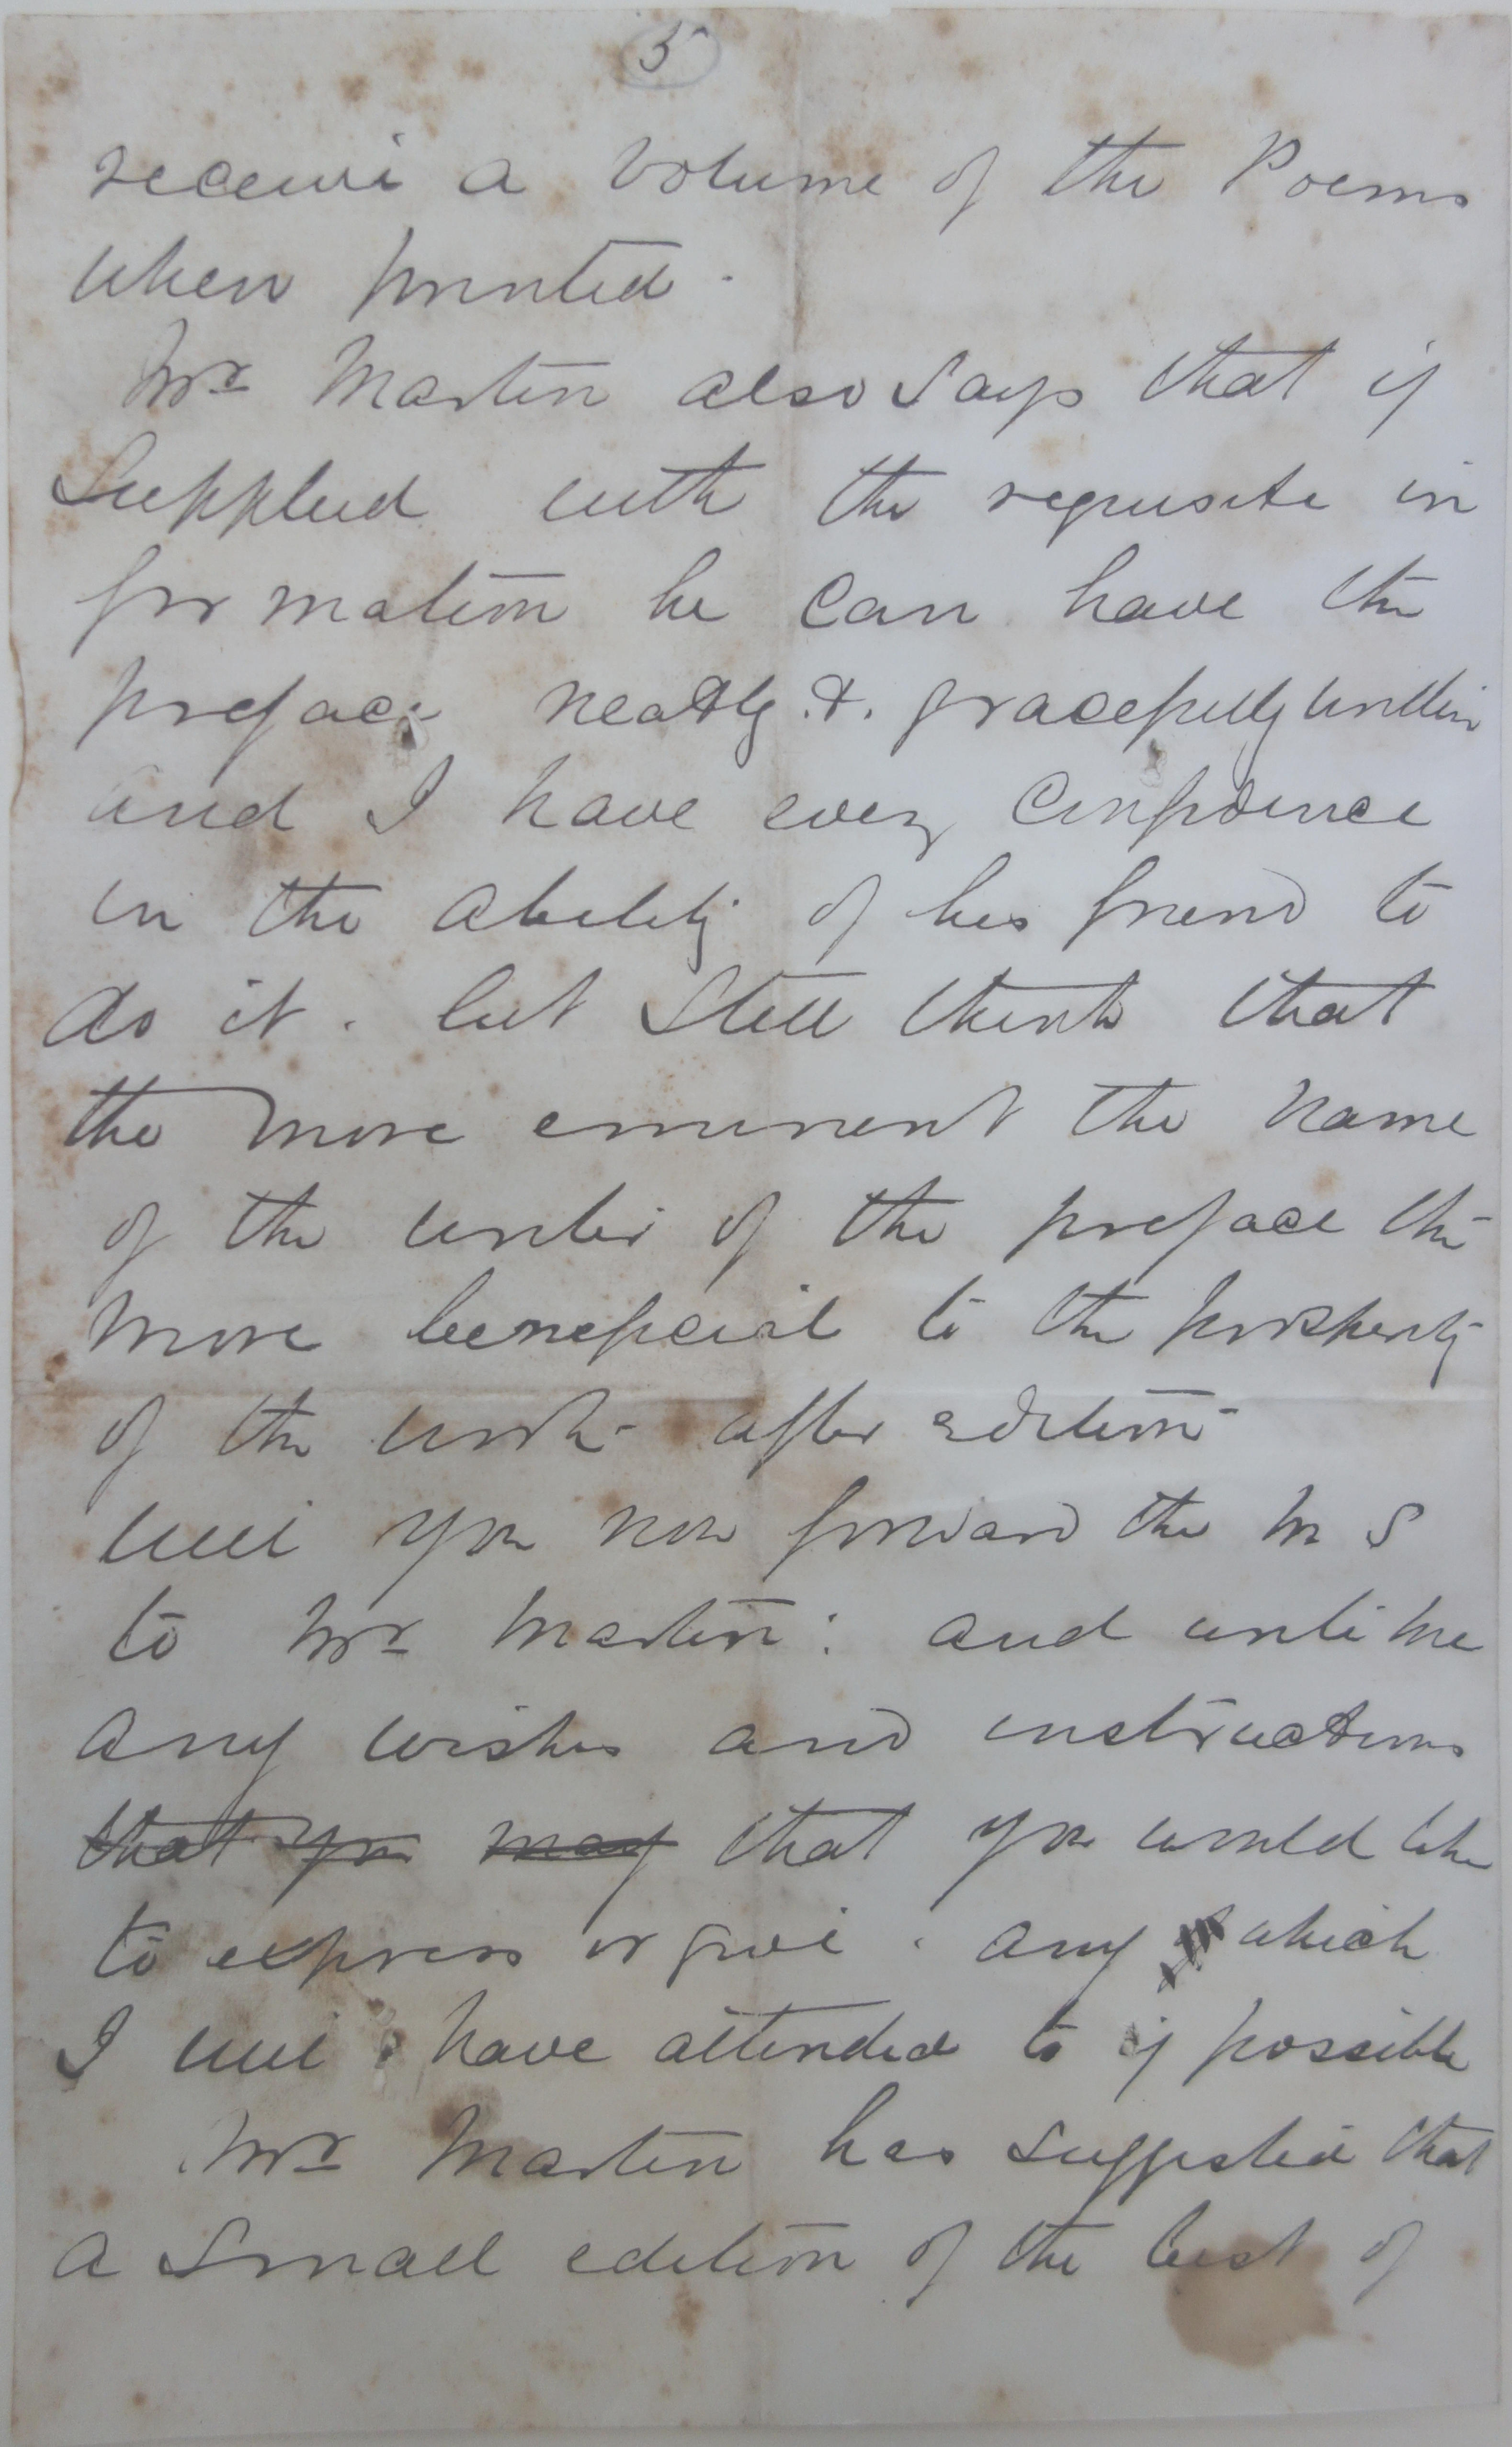 5
receive a volume of the Poems
when printed.
Mr Martin also says that if
supplied with the requisite in
formation he can have the
preface neatly & gracefully written
and I have every confidence
in the ability of his friend to
do it. but still think that
the more eminent the name
of the writer of the preface the
more beneficial to the prosperity
of the work after edition
will you now forward the M S
to Mr Martin: and write me
any wishes and instructions
that you may that you would like
to express or give. any which
I will have attended to if possible
Mr Martin has suggested that
a small edition of the best of